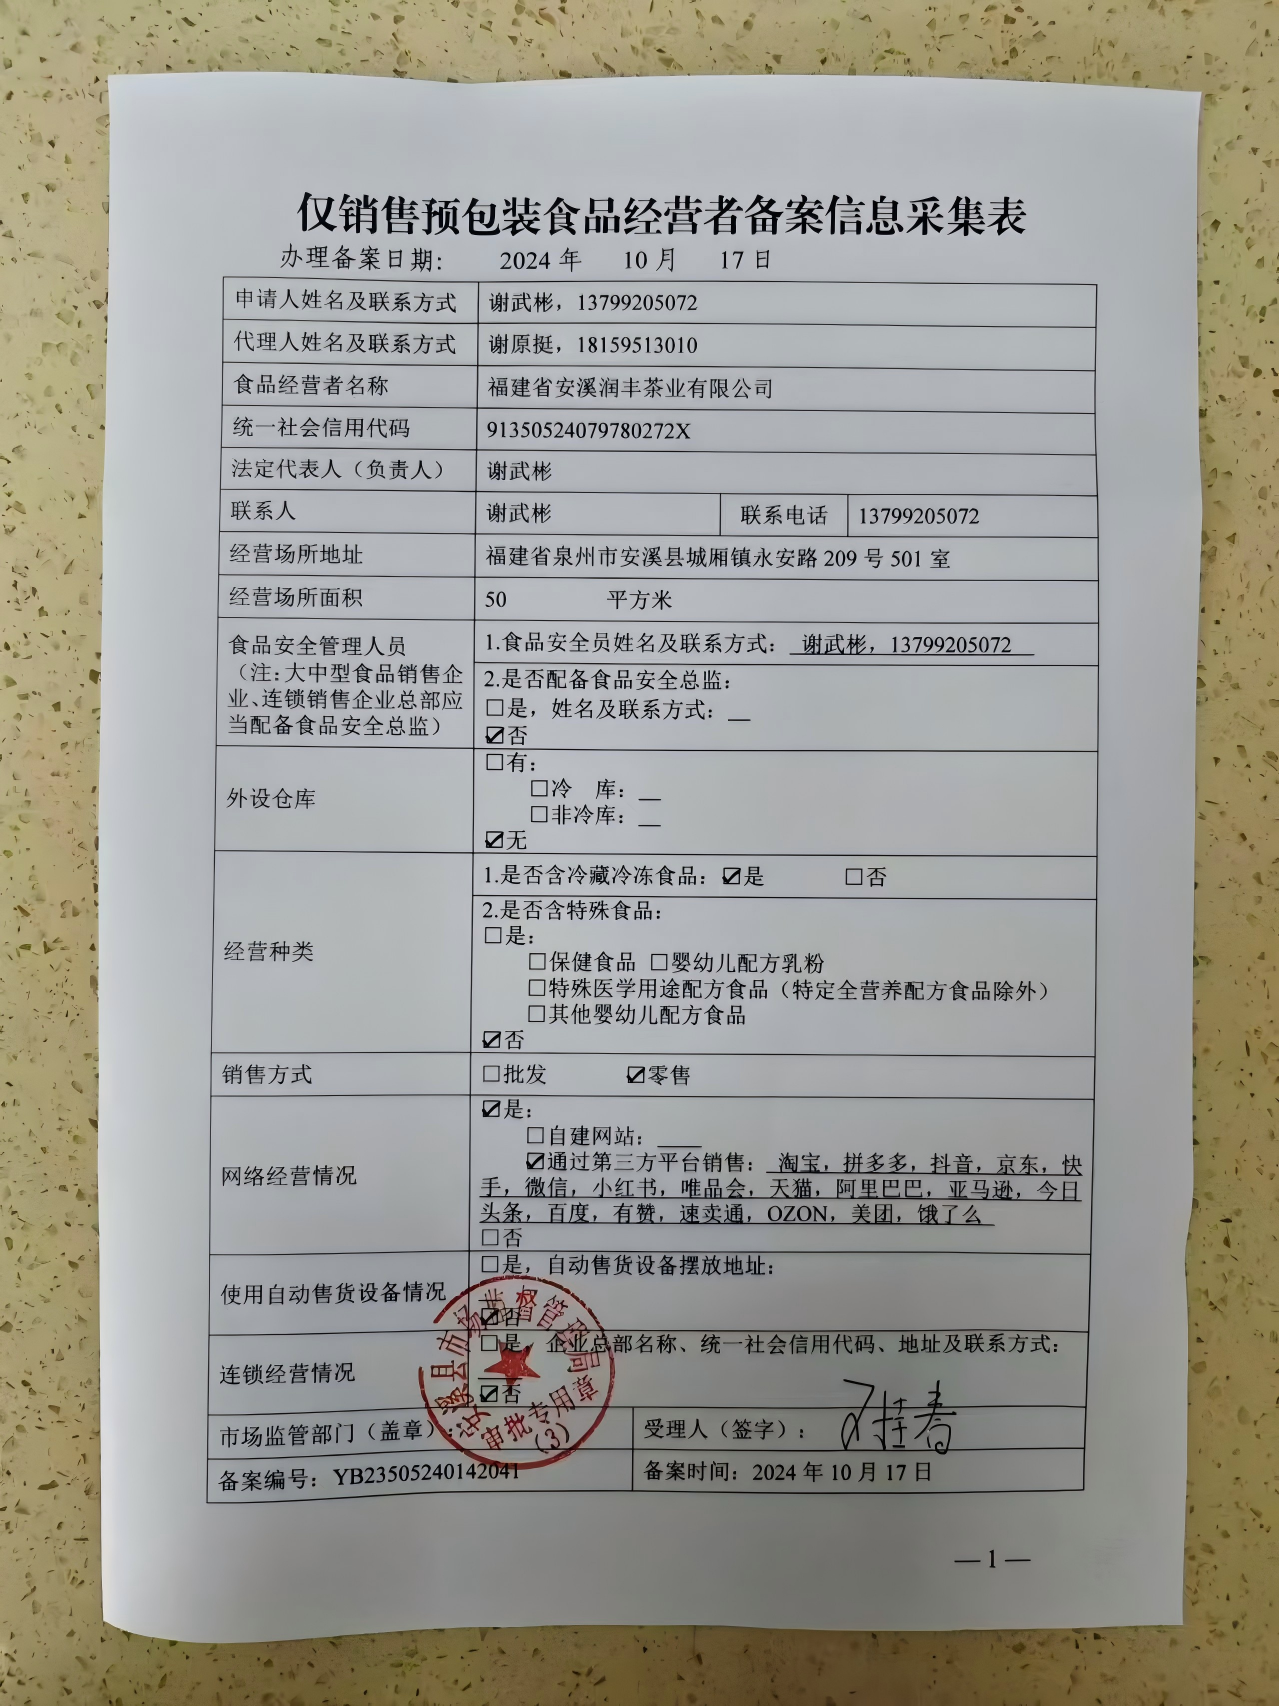 仅销售预包装食品经营者备案信息采集表
办理备案日期： 2024 年 10 月 17 日
申请人姓名及联系方式 谢武彬，13799205072
代理人姓名及联系方式 谢原挺，18159513010
食品经营者名称 福建省安溪润丰茶业有限公司
统一社会信用代码 91350524079780272X
法定代表人（负责人） 谢武彬
联系人 谢武彬 联系电话 13799205072
经营场所地址 福建省泉州市安溪县城厢镇永安路 209 号 501 室
经营场所面积 50 平方米
食品安全管理人员
（注：大中型食品销售企
业、连锁销售企业总部应
当配备食品安全总监）
1.食品安全员姓名及联系方式： 谢武彬，13799205072
2.是否配备食品安全总监：
☐是，姓名及联系方式：
☑否
外设仓库
☐有：
☐冷 库：
☐非冷库：
☑无
经营种类
1.是否含冷藏冷冻食品：☑是 ☐否
2.是否含特殊食品：
☐是：
☐保健食品 ☐婴幼儿配方乳粉
☐特殊医学用途配方食品（特定全营养配方食品除外）
☐其他婴幼儿配方食品
☑否
销售方式 ☐批发 ☑零售
网络经营情况
☑是：
☐自建网站：
☑通过第三方平台销售： 淘宝，拼多多，抖音，京东，快
手，微信，小红书，唯品会，天猫，阿里巴巴，亚马逊，今日
头条，百度，有赞，速卖通，OZON，美团，饿了么
☐否
使用自动售货设备情况
☐是，自动售货设备摆放地址：
☑否
连锁经营情况
☐是，企业总部名称、统一社会信用代码、地址及联系方式：
☑否
市场监管部门（盖章）： 受理人（签字）：
备案编号：YB23505240142041 备案时间：2024 年 10 月 17 日
安溪县市场监督管理局
审批专用章
（3）
— 1 —